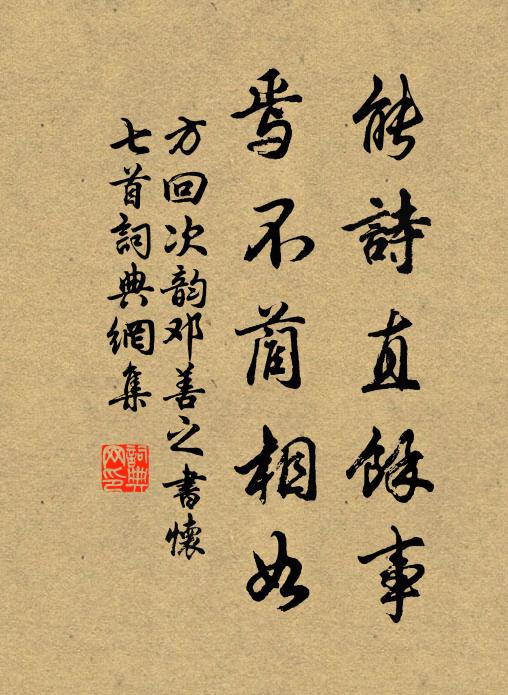 能詩直餘事
焉不藺相如
方回次韵邓善之書懷
七首詞典網集
詞典網印